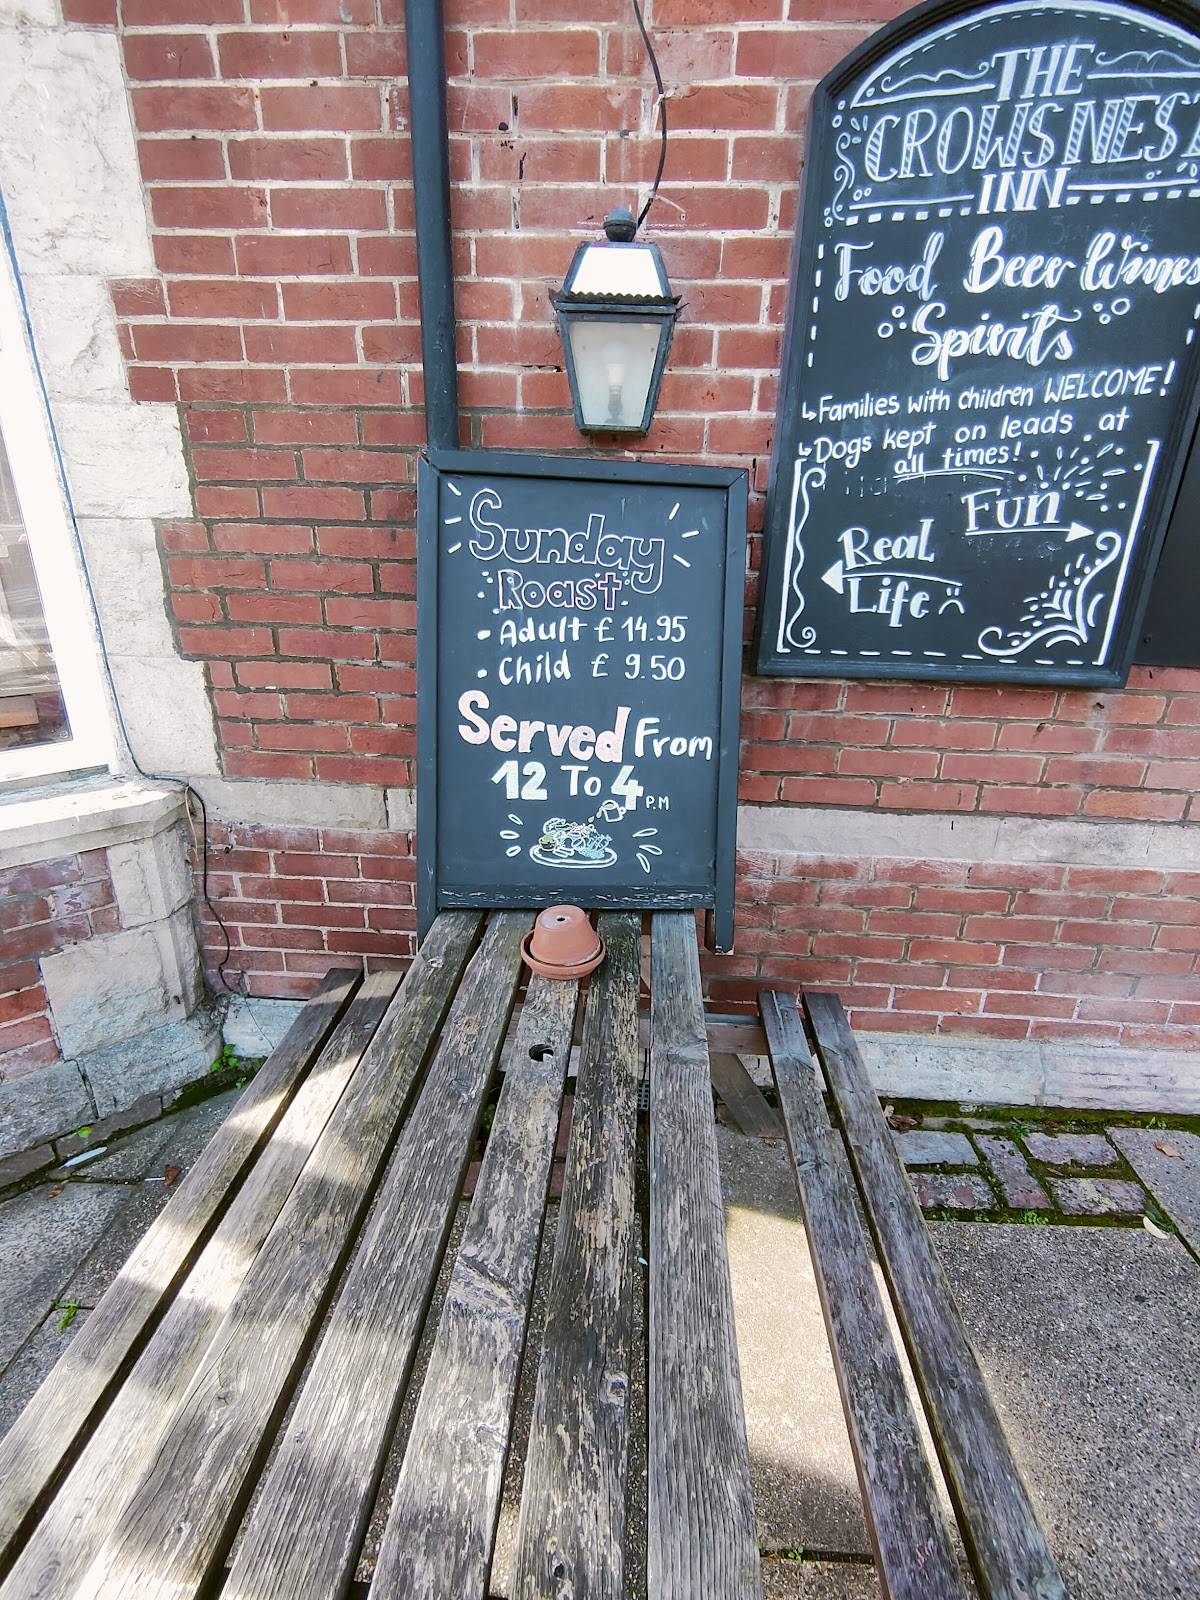 Sunday
Roast
• Adult £ 14.95
• Child £ 9.50
Served From
12 To 4 P.M
THE
CROWS NEST
INN
Food Beer Wines
Spirits
↳Families with children WELCOME!
↳Dogs kept on leads at
all times!
Fun
Real
Life